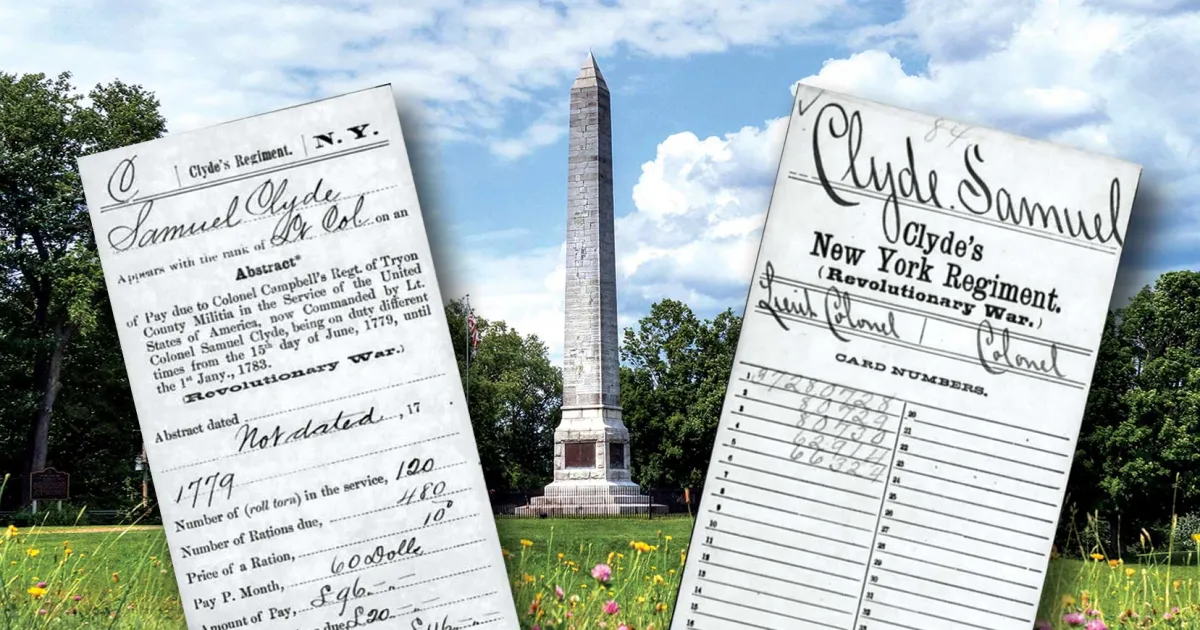 C | Clyde's Regiment. | N. Y.
Samuel Clyde
Appears with the rank of Lt Col. on an
Abstract*
of Pay due to Colonel Campbell's Regt. of Tryon
County Militia in the Service of the United
States of America, now Commanded by Lt.
Colonel Samuel Clyde, being on duty different
times from the 15th day of June, 1779, until
the 1st Jany., 1783.
(Revolutionary War.)
Abstract dated Not dated, 17 .
1779
Number of (roll torn) in the service, 120
Number of Rations due, 480
Price of a Ration, 10
Pay P. Month, 60 Dolls
Amount of Pay, £96
due £20
84
Clyde. Samuel
Clyde's
New York Regiment.
(Revolutionary War.)
Lieut Colonel | Colonel
CARD NUMBERS.
1
2
3
4
5
6
7
8
9
10
11
12
13
14
15
16
20
21
22
23
24
25
26
27
28
29
30
31
32